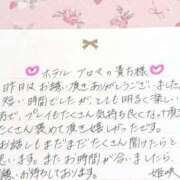 ホテル プロペの貴方様
昨日はお誘い頂きありがとうございました
短い時間でしたが、とても明るく楽しい
方で、プレイもたくさん気持ち良くなって頂き
たくさん褒めて頂き嬉しかったです
お話しもまだまだたくさん聞けたらと
思います。またお時間が合いましたら
お誘いお待ちしております。
姫咲